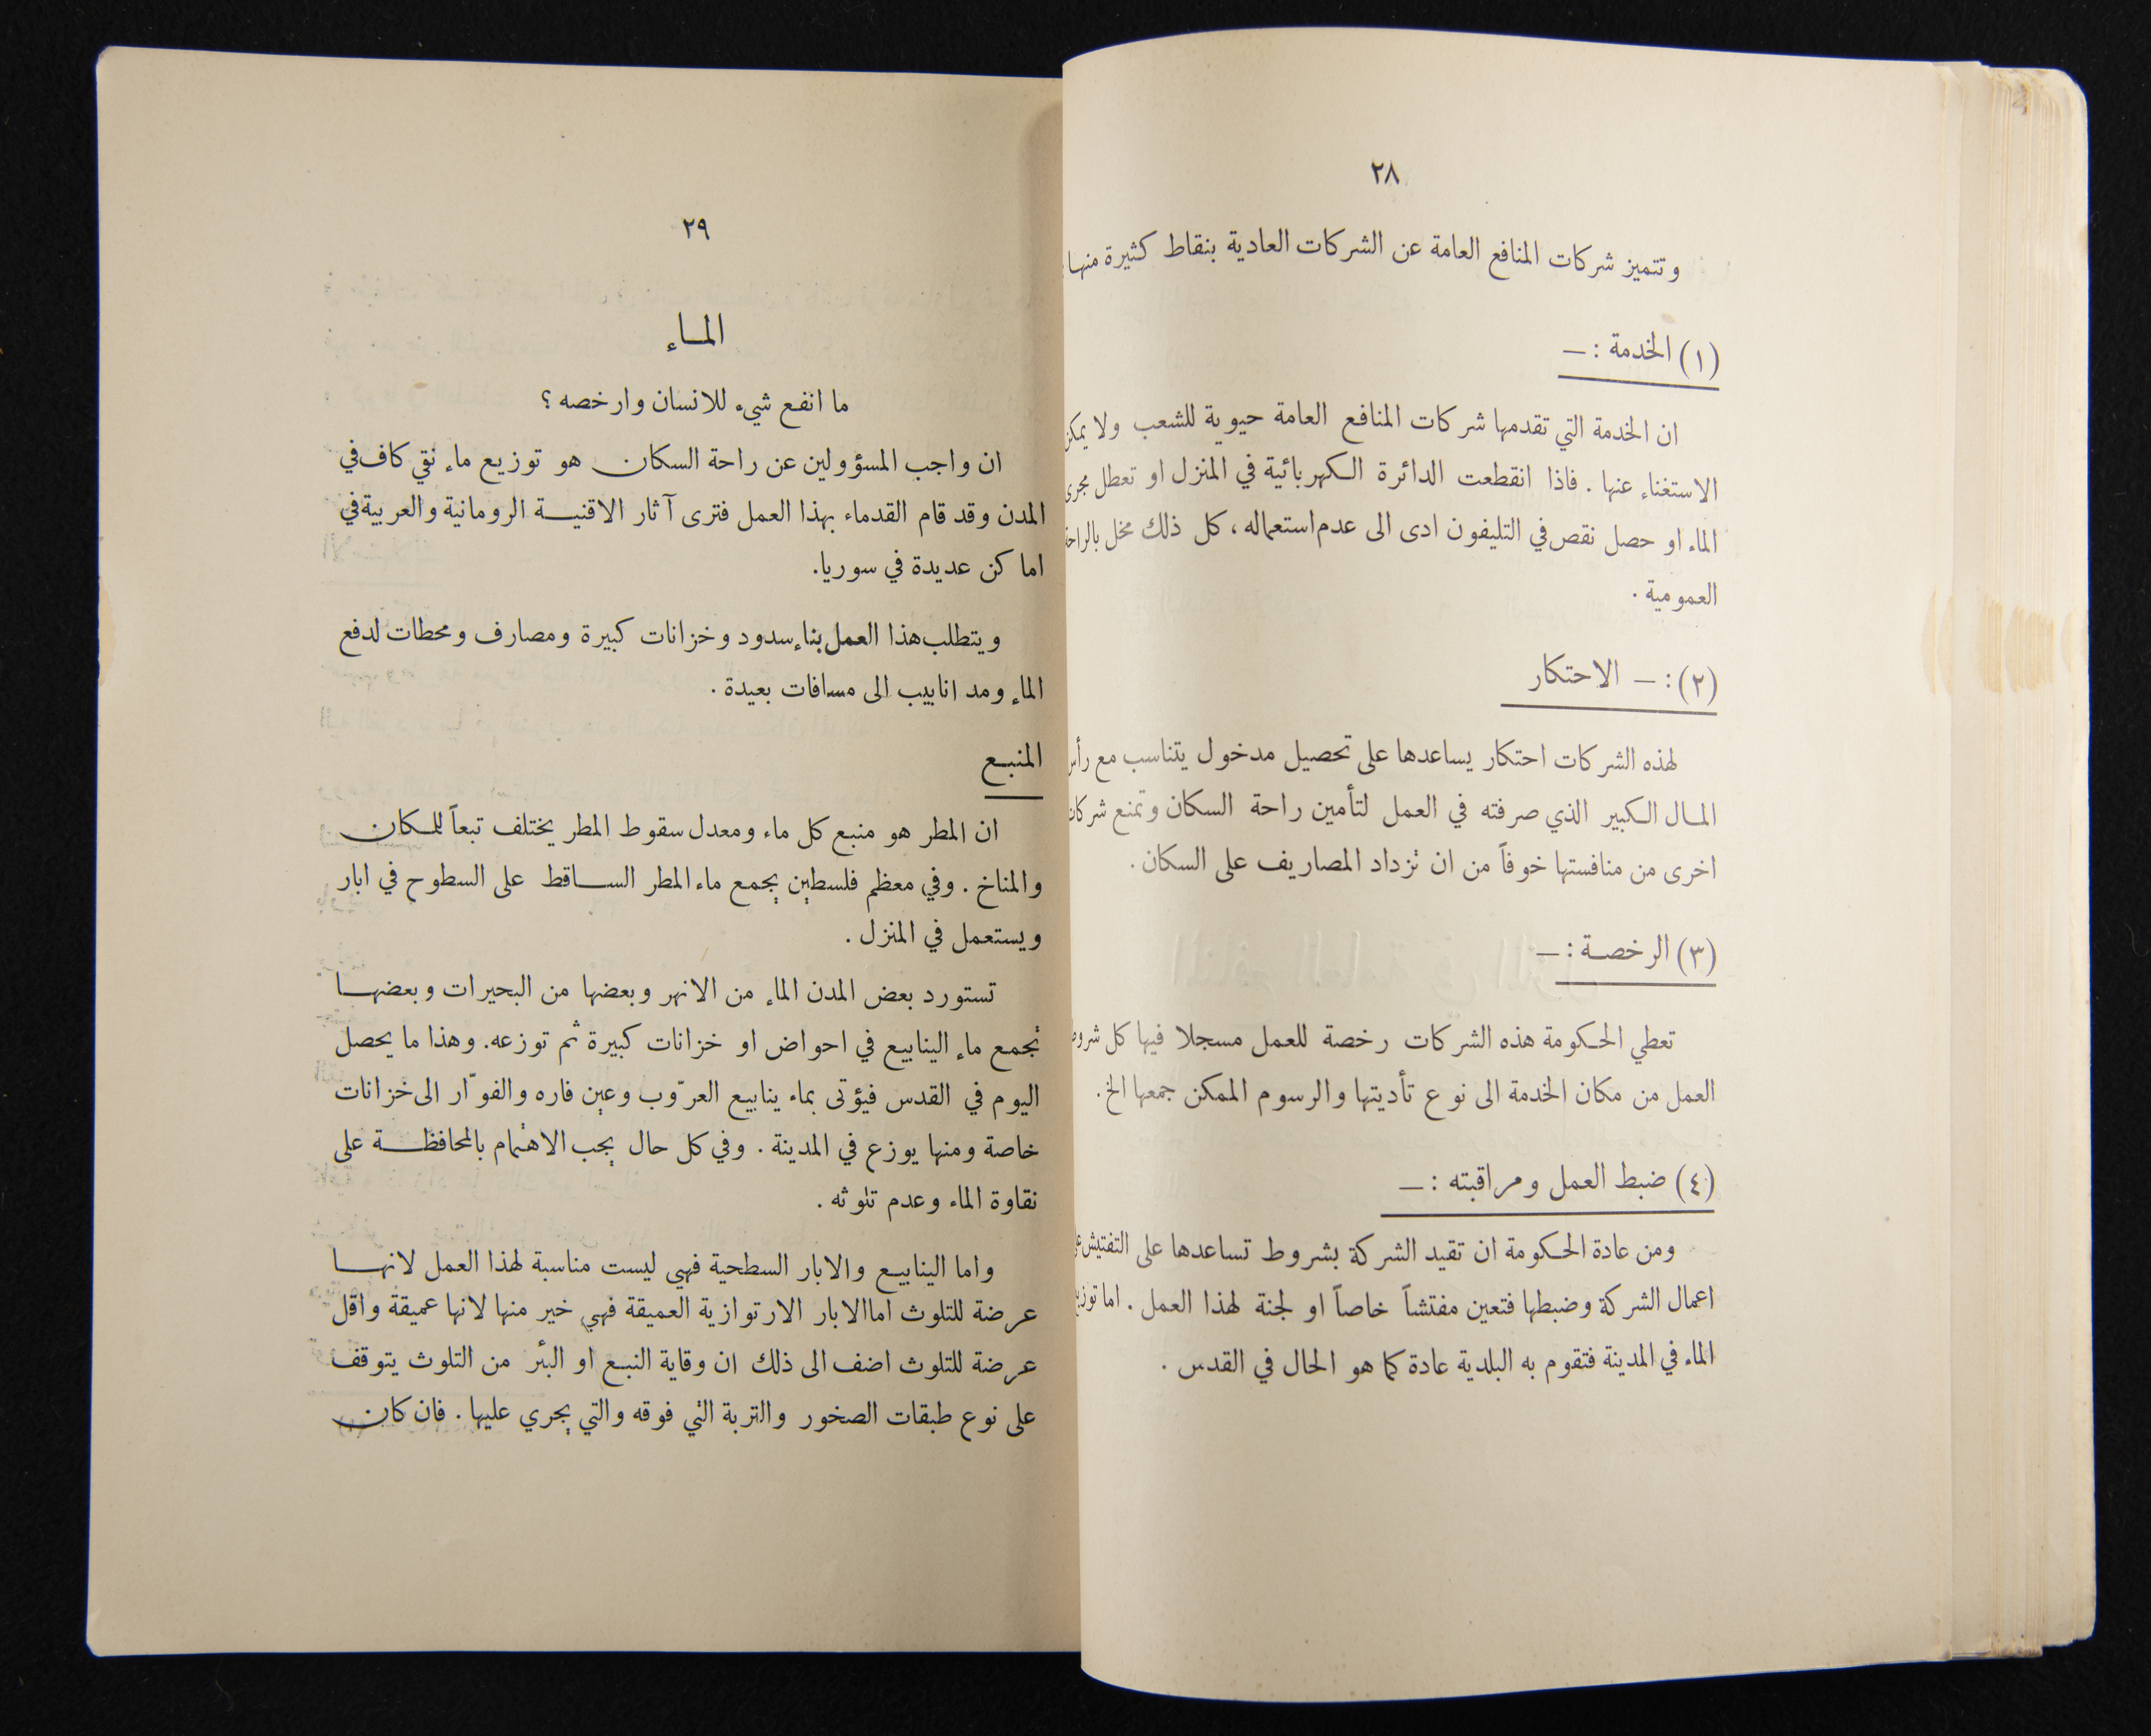 ٢٨
وتتميز شركات المنافع العامة عن الشركات العادية بنقاط كثيرة منها
(١) الخدمة : —
ان الخدمة التي تقدمها شركات المنافع العامة حيوية للشعب ولا يمكن
الاستغناء عنها . فاذا انقطعت الدائرة الكهربائية في المنزل او تعطل مجرى
الماء او حصل نقص في التليفون ادى الى عدم استعماله ، كل ذلك مخل بالراحة
العمومية .
(٢) : — الاحتكار
لهذه الشركات احتكار يساعدها على تحصيل مدخول يتناسب مع رأس
المال الكبير الذي صرفته في العمل لتأمين راحة السكان وتمنع شركات
اخرى من منافستها خوفاً من ان تزداد المصاريف على السكان .
(٣) الرخصة : —
تعطي الحكومة هذه الشركات رخصة للعمل مسجلا فيها كل شروط
العمل من مكان الخدمة الى نوع تأديتها والرسوم الممكن جمعها الخ .
(٤) ضبط العمل ومراقبته : —
ومن عادة الحكومة ان تقيد الشركة بشروط تساعدها على التفتيش على
اعمال الشركة وضبطها فتعين مفتشاً خاصاً او لجنة لهذا العمل . اما توزيع
الماء في المدينة فتقوم به البلدية عادة كما هو الحال في القدس .
٢٩
الماء
ما انفع شيء للانسان وارخصه ؟
ان واجب المسؤولين عن راحة السكان هو توزيع ماء نقي كاف في
المدن وقد قام القدماء بهذا العمل فترى آثار الاقنية الرومانية والعربية في
اماكن عديدة في سوريا.
ويتطلب هذا العمل بناء سدود وخزانات كبيرة ومصارف ومحطات لدفع
الماء ومد انابيب الى مسافات بعيدة .
المنبع
ان المطر هو منبع كل ماء ومعدل سقوط المطر يختلف تبعاً للمكان
والمناخ . وفي معظم فلسطين يجمع ماء المطر الساقط على السطوح في ابار
ويستعمل في المنزل .
تستورد بعض المدن الماء من الانهر وبعضها من البحيرات وبعضها
تجمع ماء الينابيع في احواض او خزانات كبيرة ثم توزعه. وهذا ما يحصل
اليوم في القدس فيؤتى بماء ينابيع العرّوب وعين فاره والفوّار الى خزانات
خاصة ومنها يوزع في المدينة . وفي كل حال يجب الاهتمام بالمحافظة على
نقاوة الماء وعدم تلوثه .
واما الينابيع والابار السطحية فهي ليست مناسبة لهذا العمل لانها
عرضة للتلوث اما الابار الارتوازية العميقة فهي خير منها لانها عميقة واقل
عرضة للتلوث اضف الى ذلك ان وقاية النبع او البئر من التلوث يتوقف
على نوع طبقات الصخور والتربة التي فوقه والتي يجري عليها . فان كان